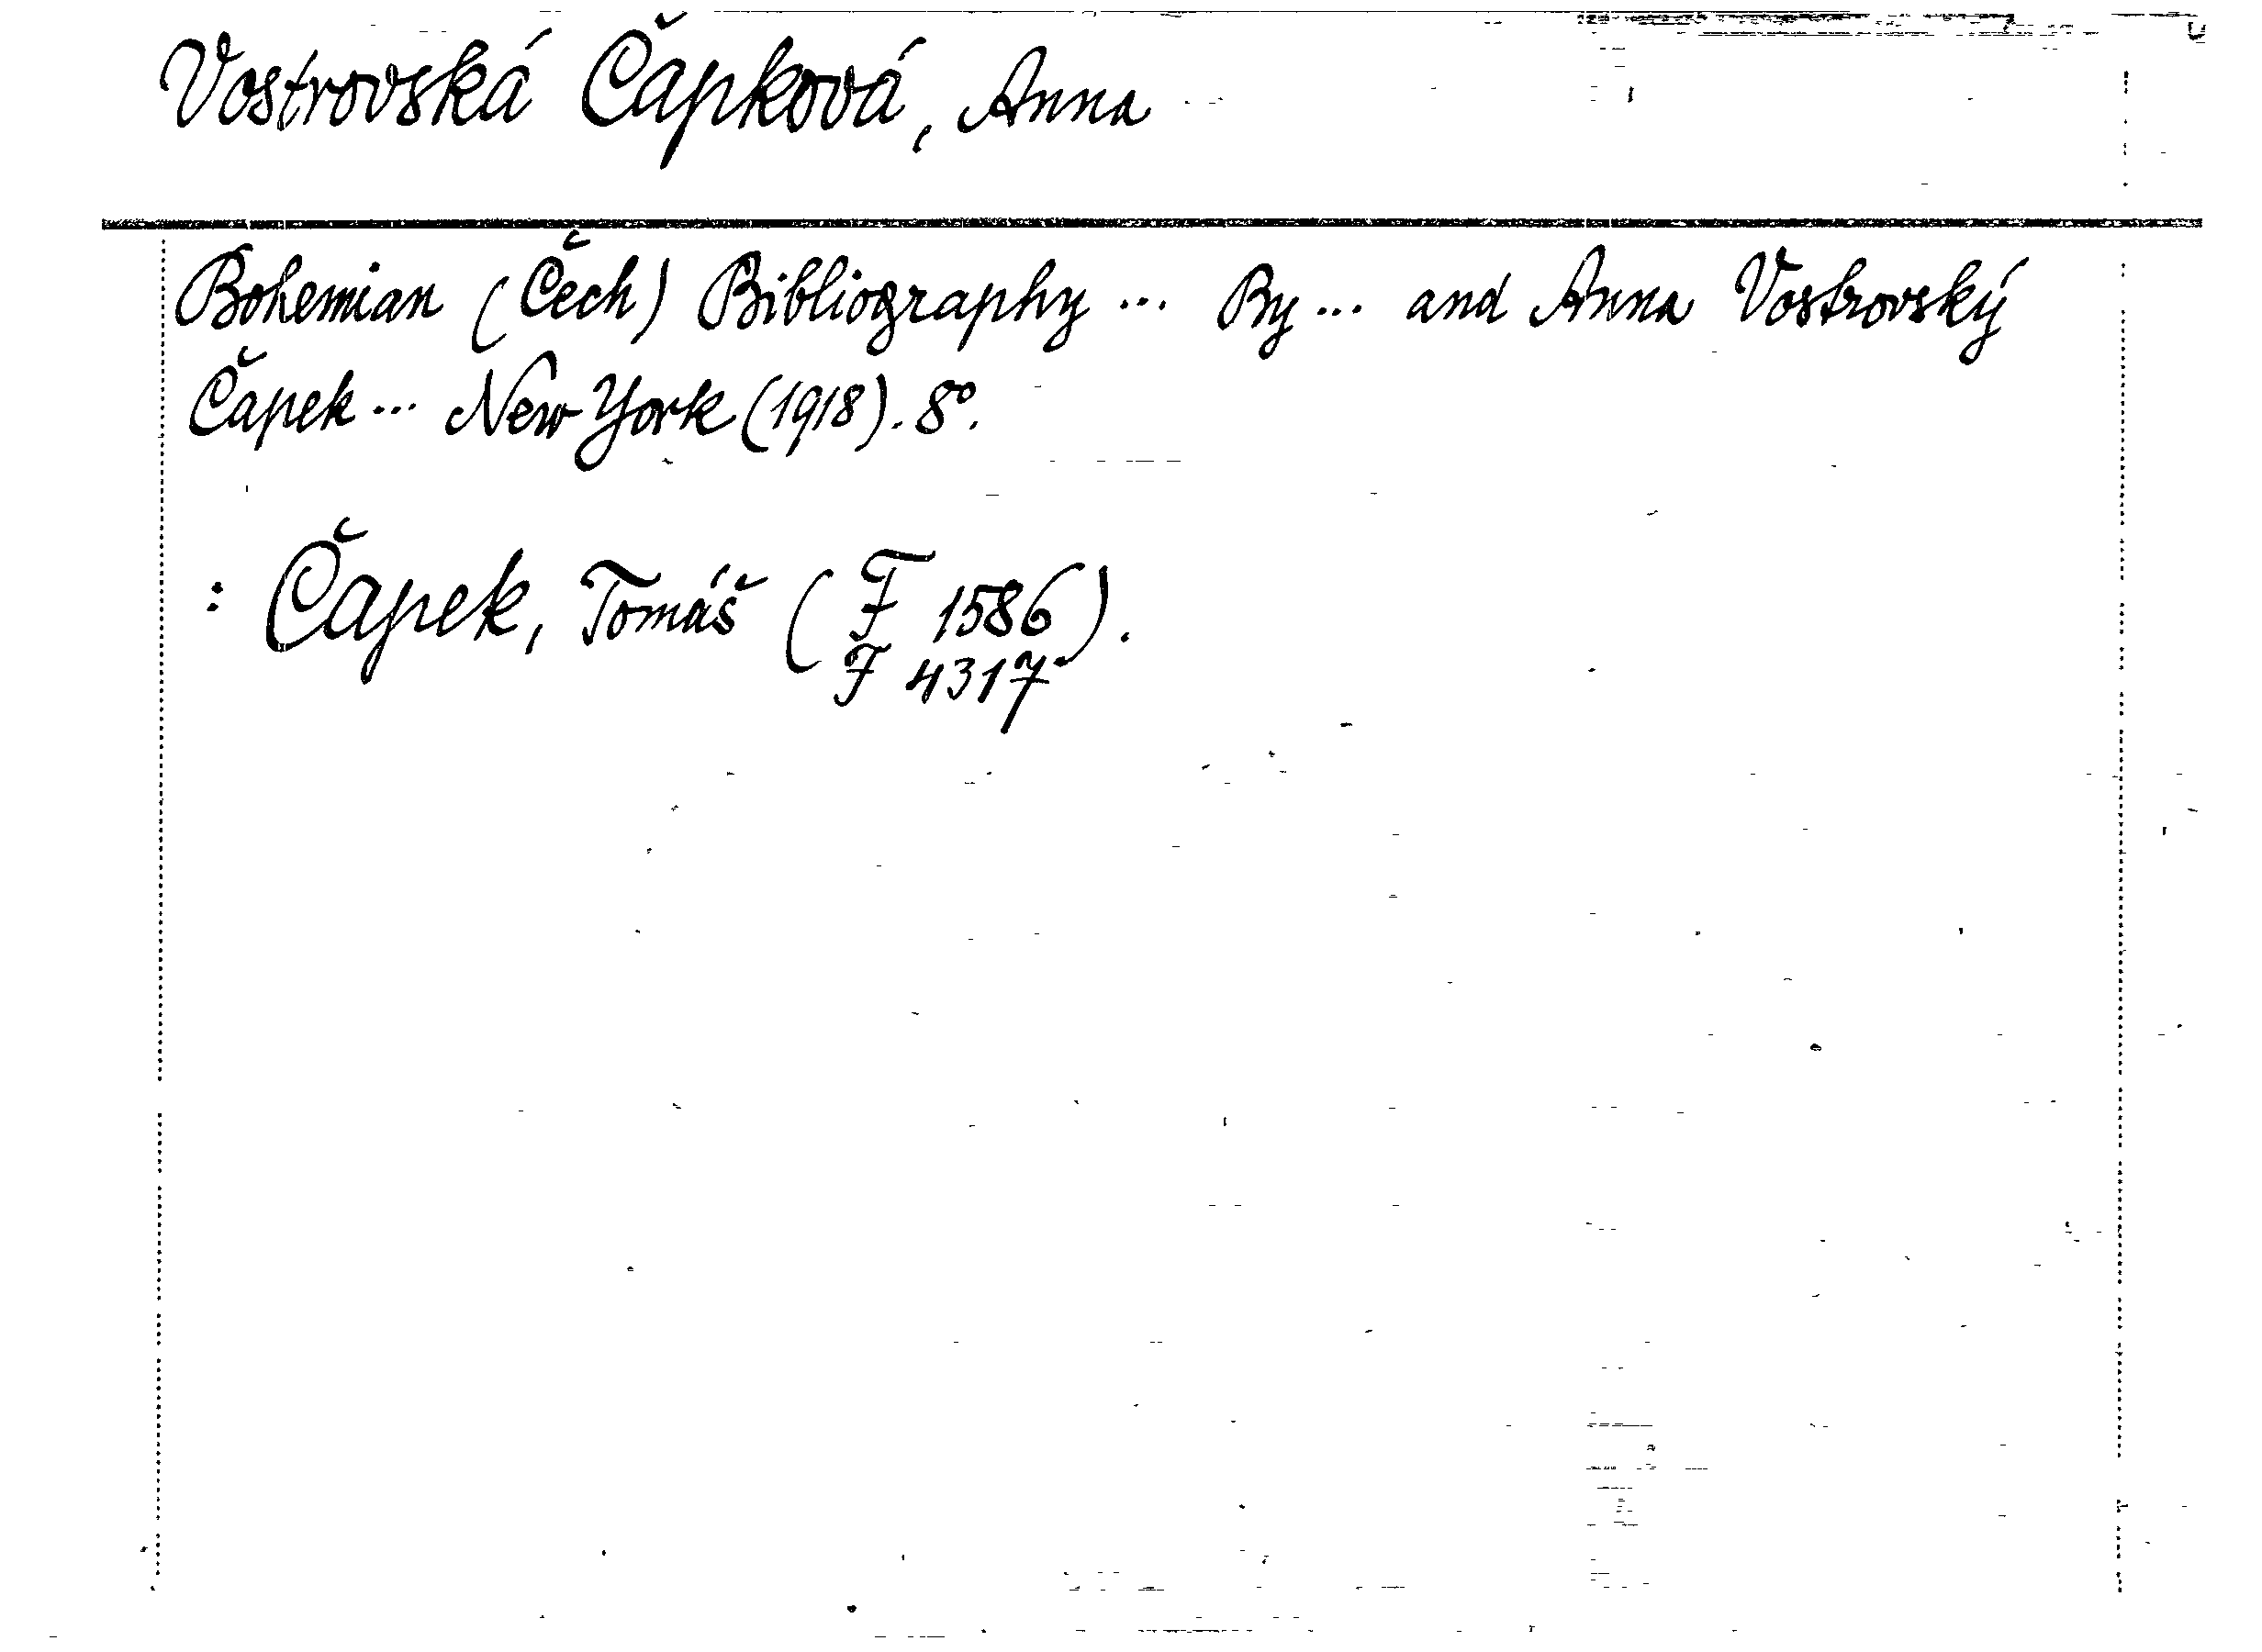 Vostrovská Čapková, Anna
Bohemian (Čech) Bibliography ... By ... and Anna Vostrovský
Čapek ... New York (1918). 8°.
: Čapek, Tomáš (F 1586).
F 4317